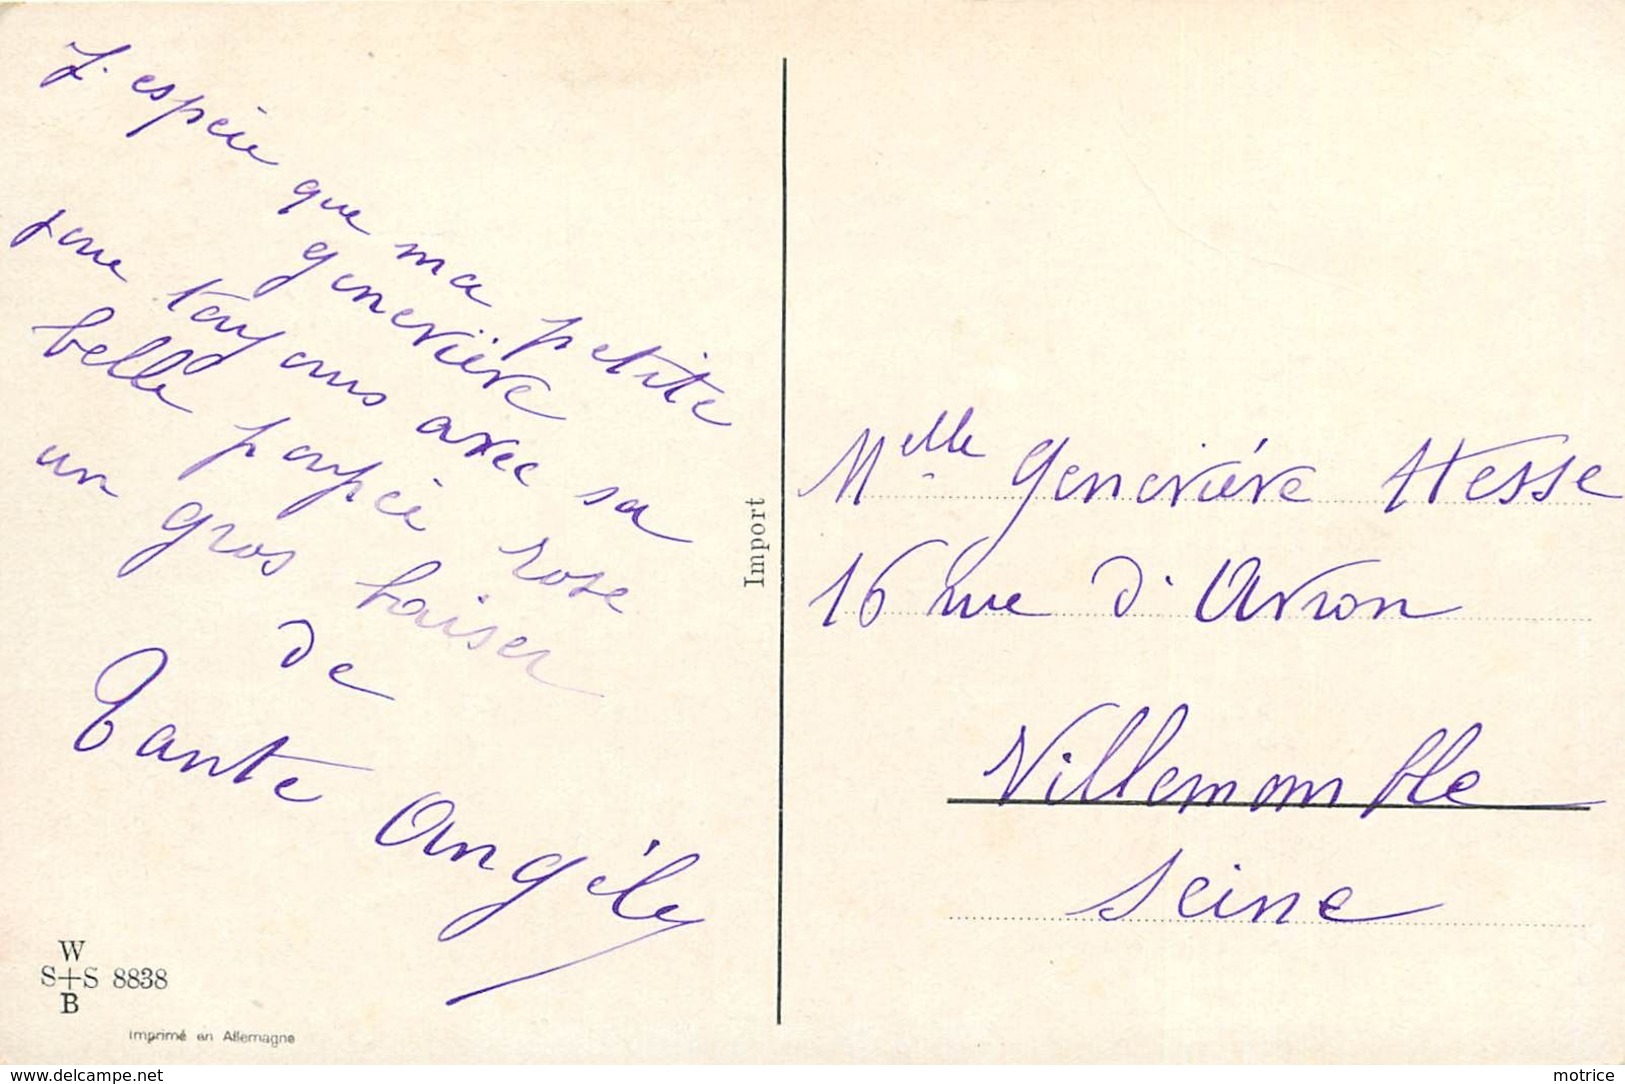 J'espère que ma petite
geneviève
joue toujours avec sa
belle poupée rose
un gros baiser
de
Tante Angèle
Import
Melle Geneviève Hesse
16 rue d'Avron
Villemomble
Seine
W
S+S 8838
B
Imprimé en Allemagne
www.delcampe.net
motrice